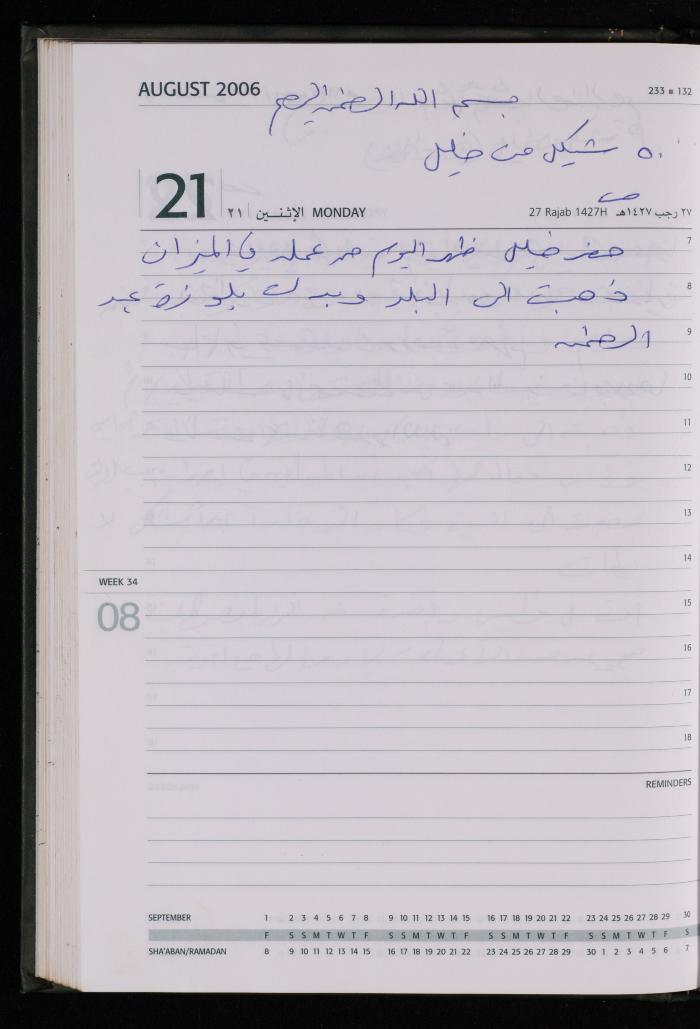 AUGUST 2006
233 ■ 132
بسم الله الرحمن الرحيم
٥٠ شيكل من خليل
21 ٢١ الإثنين MONDAY
27 Rajab 1427H ٢٧ رجب ١٤٢٧هـ
7
حضر خليل ظهر اليوم من عمله في الميزان
8
ذهبت الى البلد وبدلت بلوزة عبد
9
الرحمن
10
11
12
13
14
WEEK 34
08
15
16
17
18
REMINDERS
SEPTEMBER 1 2 3 4 5 6 7 8 9 10 11 12 13 14 15 16 17 18 19 20 21 22 23 24 25 26 27 28 29 30
F S S M T W T F S S M T W T F S S M T W T F S S M T W T F S
SHA'ABAN/RAMADAN 8 9 10 11 12 13 14 15 16 17 18 19 20 21 22 23 24 25 26 27 28 29 30 1 2 3 4 5 6 7